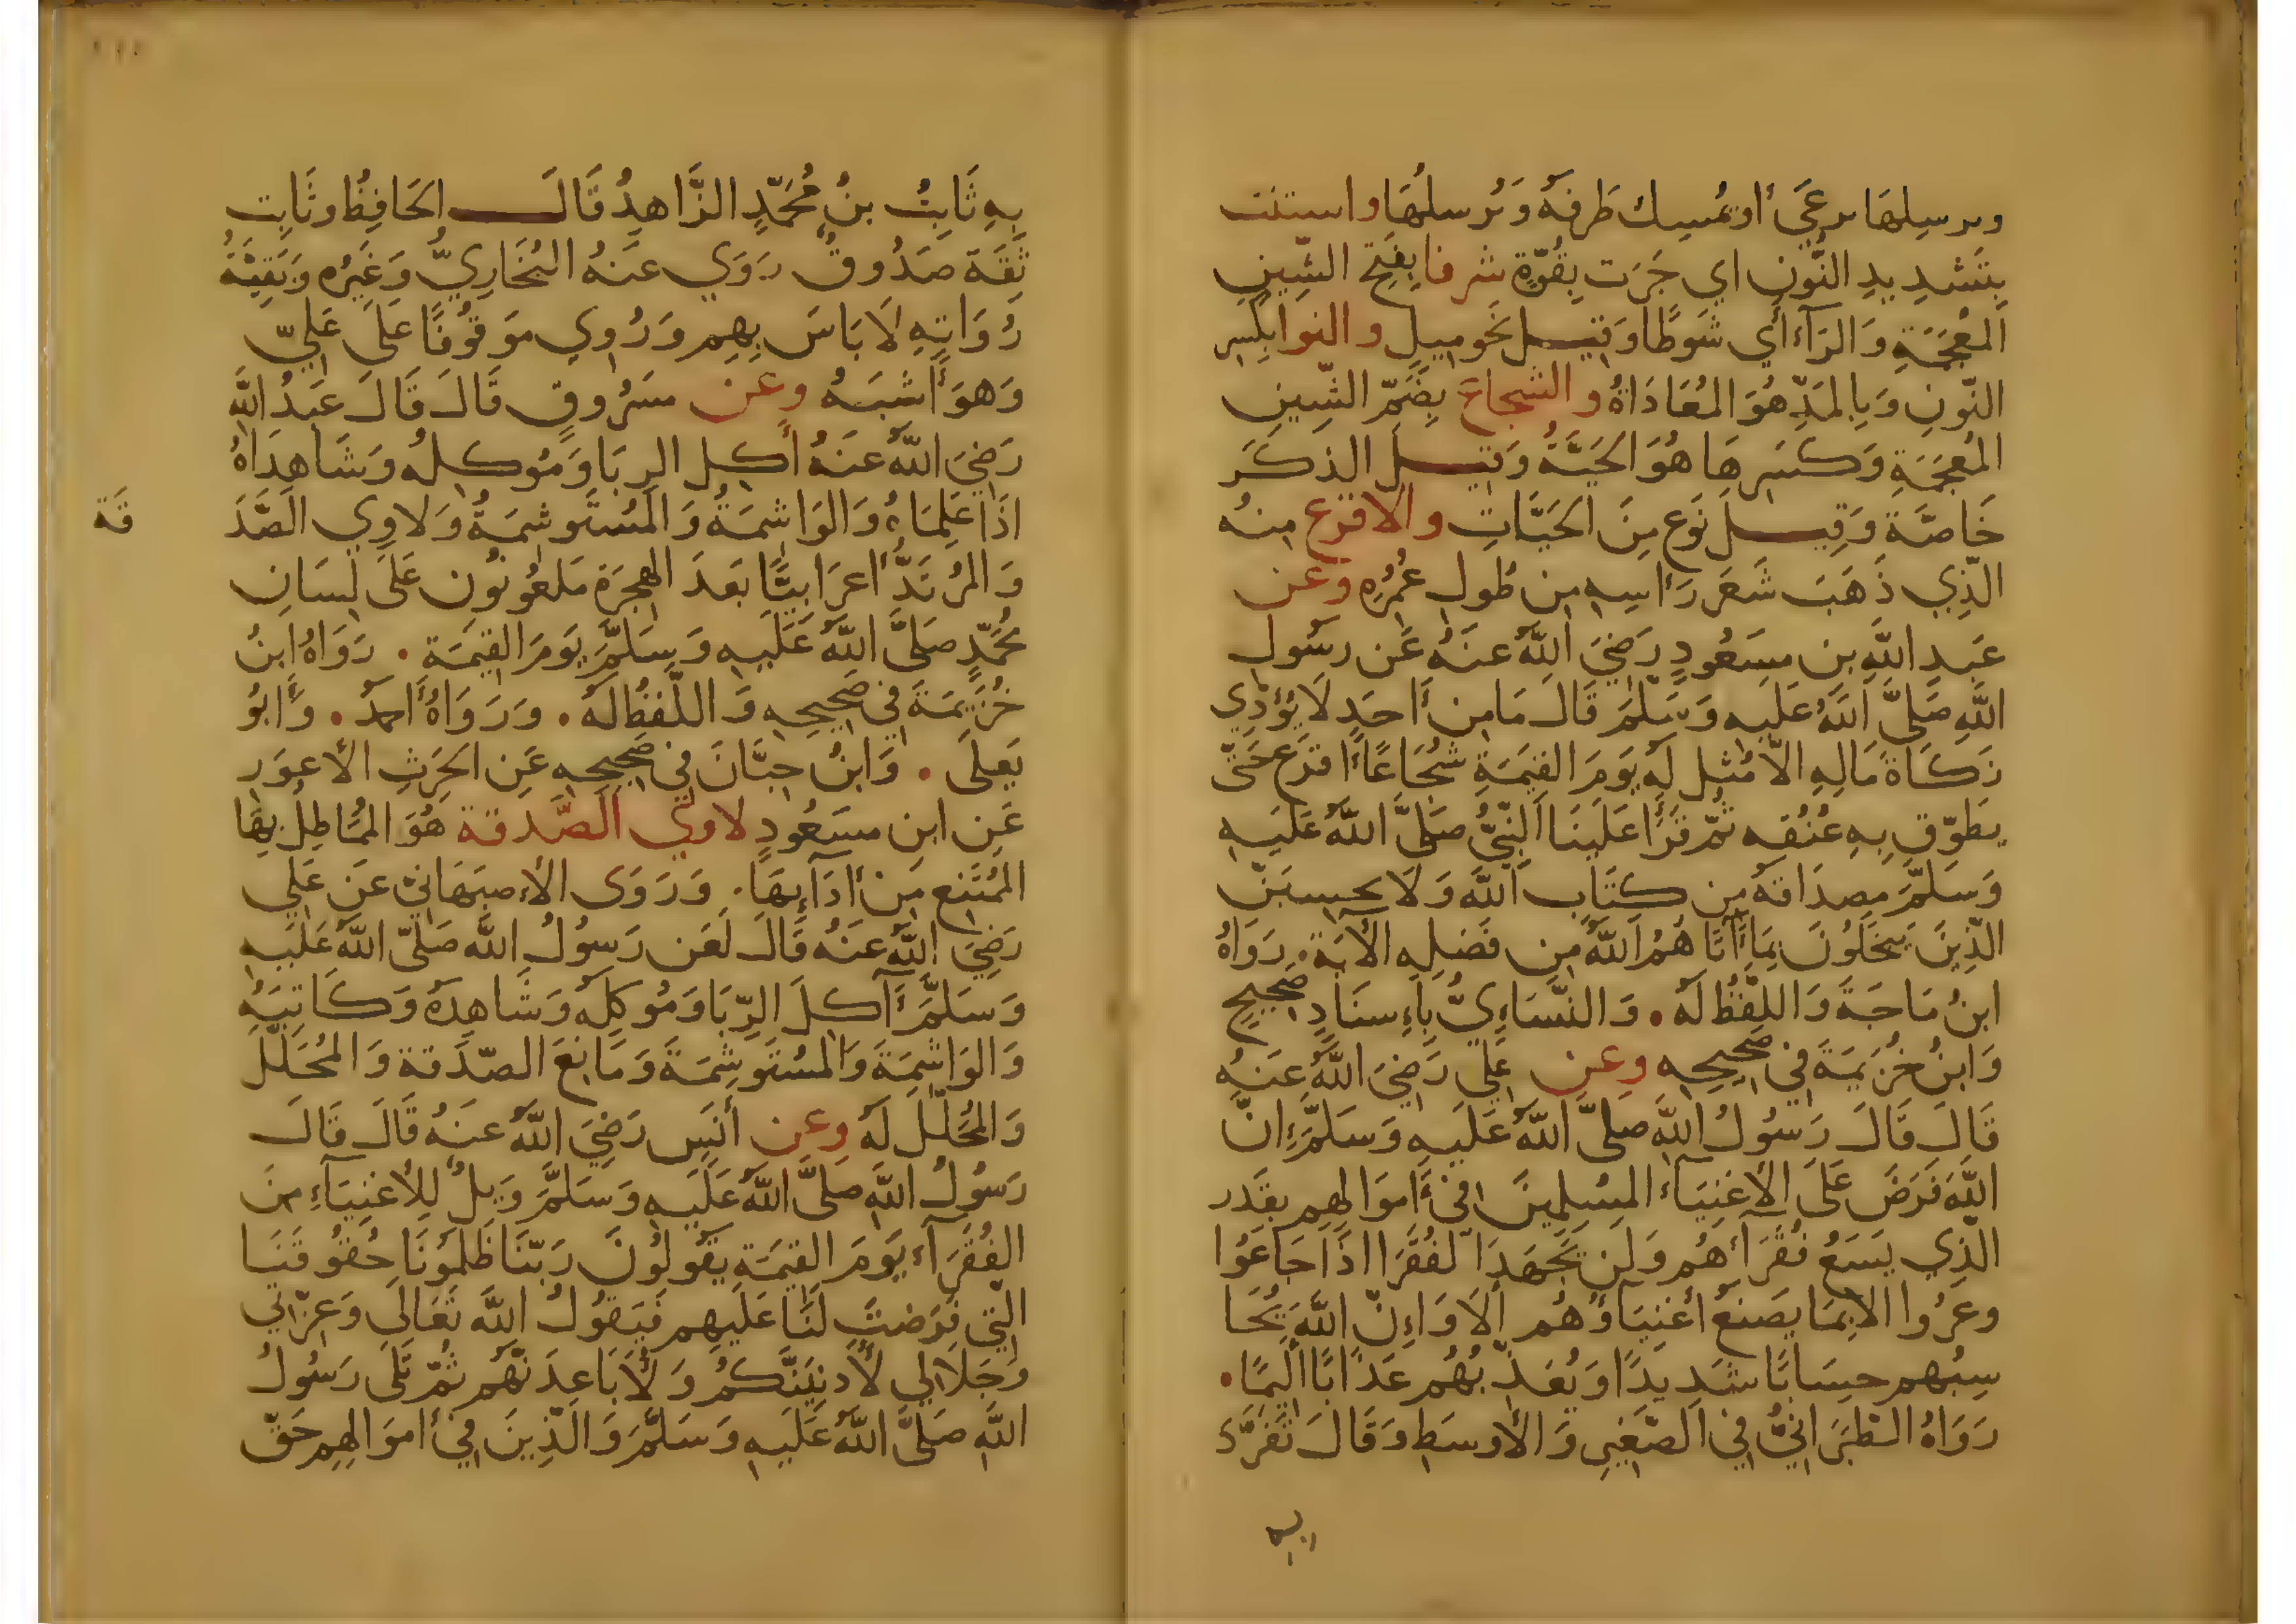 ويرسلها يرعَي أو يمُسِك طَرفهُ وَيُرسلُهَا واستنت
بِتَشدِيدِ النُّونِ اي جَرَت بِقُوّةٍ شرفا بِفَتحِ الشِّينِ
المُعجَمَةِ وَالرّآءِ أي شَوطًا وَقيل نَحو مِيلٍ والنوا بكِسرِ
النّونِ وَبِالمَدّ هُوَ المُعَادَاةُ والشجاع بِضَمّ الشِّينِ
المُعجَمَةِ وَكَسرِهَا هُوَ الحَيَّةُ وَقيل الذكَر
خَاصَّةِ وَقِيل نَوع مِنَ الحَيَّاتِ والاقرع مِنهُ
الّذِي ذَهَبَ شَعَر رَأسِهِ مِن طُولِ عُمُرِهِ وعن
عَبدِ اللّهِ بنِ مسعُودٍ رَضِيَ اللّهُ عنهُ عَن رسُولِ
اللّهِ صَلَّى اللّهُ عَلَيهِ وَسَلّمَ قَالَ مَا مِن أَحَدٍ لَا يُؤدِي
زَكَاةَ مَالِهِ الاّ مُثل لَهُ يَومَ القِيٰمَةِ شُجَاعًا أَقرَع حَتّى
يطَوّق بِهِ عُنُقه ثُمّ قَرَأَ عَلَينَا النّبِيُّ صَلَّى اللّهُ عَلَيهِ
وَسَلّمَ مِصدَاقهُ مِن كِتَابِ اللّه وَلَا يحسبَنّ
الّذِينَ يَبخَلُونَ بِمَا آتَاهُمُ اللّهُ مِن فَضلِهِ الأيَة. رَوَاهُ
ابنُ مَاجَةَ وَاللّفظُ لَهُ. وَالنّسَاءِيُّ بِاءِسنَادٍ صَحِيحٍ
وَابنُ خُزَيمَةَ فِي صَحِيحِهِ وعن عَلِي رَضِيَ اللّهُ عنهُ
قَالَ قَالَ رَسُولُ اللّهِ صَلَّى اللّهُ عَلَيهِ وَسَلّمَ إِنّ
اللّهَ فَرَضَ عَلَى الأَغنِيَآءِ المسُلِمِينَ فِي أَموَالِهِم بِقَدر
الّذِي يَسَعُ فُقَرَآءهُم وَلَن تَجهَدَا لفُقَرَا اذَا جَاعَوُا
وعَرُوا الابِمَا يَصنَعُ أَغنِيَآؤُهُم أَلَا وَاءِنّ اللّهَ يُحَا
سِبُهم حِسَابًا شَدِيدًا وَيُعَذّبُهُم عَذَابًا أَلِيمًا.
رَوَاهُ الطّبَرَانِيُّ فِي الصّغِيرِ وَالأَوسَطِ وَقَالَ تَفَرَّدَ
به
بِهِ ثَابِتُ بنُ مُحَمّدٍ الزّاهِدُ قَالَ الحَافِظُ وثَابِت
ثِقَة صَدُوقٌ رَوَي عَنهُ البُخَارِيُّ وَغَيرُه وَبَقِيّةُ
رُوَاتِهِ لَا بَاسَ بِهِم وَرُوِي مَوقُوفًا عَلَى عَلِيّ
وَهوَ أَشبَهُ وعن مسَرُوقٍ قَالَ قَالَ عَبدُ اللّهِ
رَضِيَ اللّهُ عَنهُ أَكِل الرِبَا وَمُوكِلُه وَشَاهِدَاهُ
اذَا عَلِمَاهُ وَالوَاشِمَةُ وَالمُستَوشِمَةُ وَلاوِي الصَّدَ
قَة
وَالمُرتَدُّ أَعرَابِيًّا بَعدَ الهِجرَةِ مَلعُونُون عَلَى لِسَانِ
مُحَمّدٍ صَلَّى اللّهُ عَلَيهِ وَسَلّمَ يَومَ القِيٰمَةِ. رَوَاهُ ابنُ
خُزَيمَةَ فِي صَحِيحِهِ وَاللّفظُ لَهُ. وَرَوَاهُ أَحمدُ. وَأَبُو
يَعلَى. وَابنُ حِبَّانَ فِي صَحِيحِهِ عَنِ الحَرثِ الأَعوَرِ
عَنِ ابنِ مسعُودٍ لاوي الصّدقة هُوَ المُمَاطِلُ بِهَا
المُمتَنِع مِن أَدَآئِهَا. وَرَوَى الأَصبَهَانِيّ عَن عَلِي
رَضِيَ اللّهُ عَنهُ قَالَ لَعَن رَسوُلُ اللّهِ صَلّى اللّهُ عَلَيهِ
وَسَلّمَ آكِلَ الرِّبَا وَمُوكِلَهُ وَشَاهِدَهُ وَكَاتِبَهُ
وَالوَاشِمَةَ وَالمُستَوشِمَةَ وَمَانِعَ الصّدَقة وَالمُحَلّل
وَالمُحَلّلَ لَهُ وعن أَنَسٍ رَضِيَ اللّهُ عنهُ قَالَ قَالَ
رَسُولُ اللّهِ صَلَّى اللّهُ عَلَيهِ وَسَلّمَ وَيلٌ لِلأَغنِيَآءِ مِنَ
الفُقَرَآءِ يَومَ القِيٰمَةِ يَقُولُونَ رَبّنَا ظَلَمُونَا حُقُوقَنَا
الّتِي فُرِضَت لَنَا عَلَيهِم فَيَقُولُ اللّهُ تَعَالَى وَعِزّتي
وَجَلَالِي لَأُدنِيَنّكُمُ وَلَأُبَاعِدَنّهُم ثُمّ تَلَى رَسُولُ
اللّهِ صَلَّى اللّهُ عَلَيهِ وَسَلّمَ وَالّذِينَ فِي أَموَالِهِم حَقّ